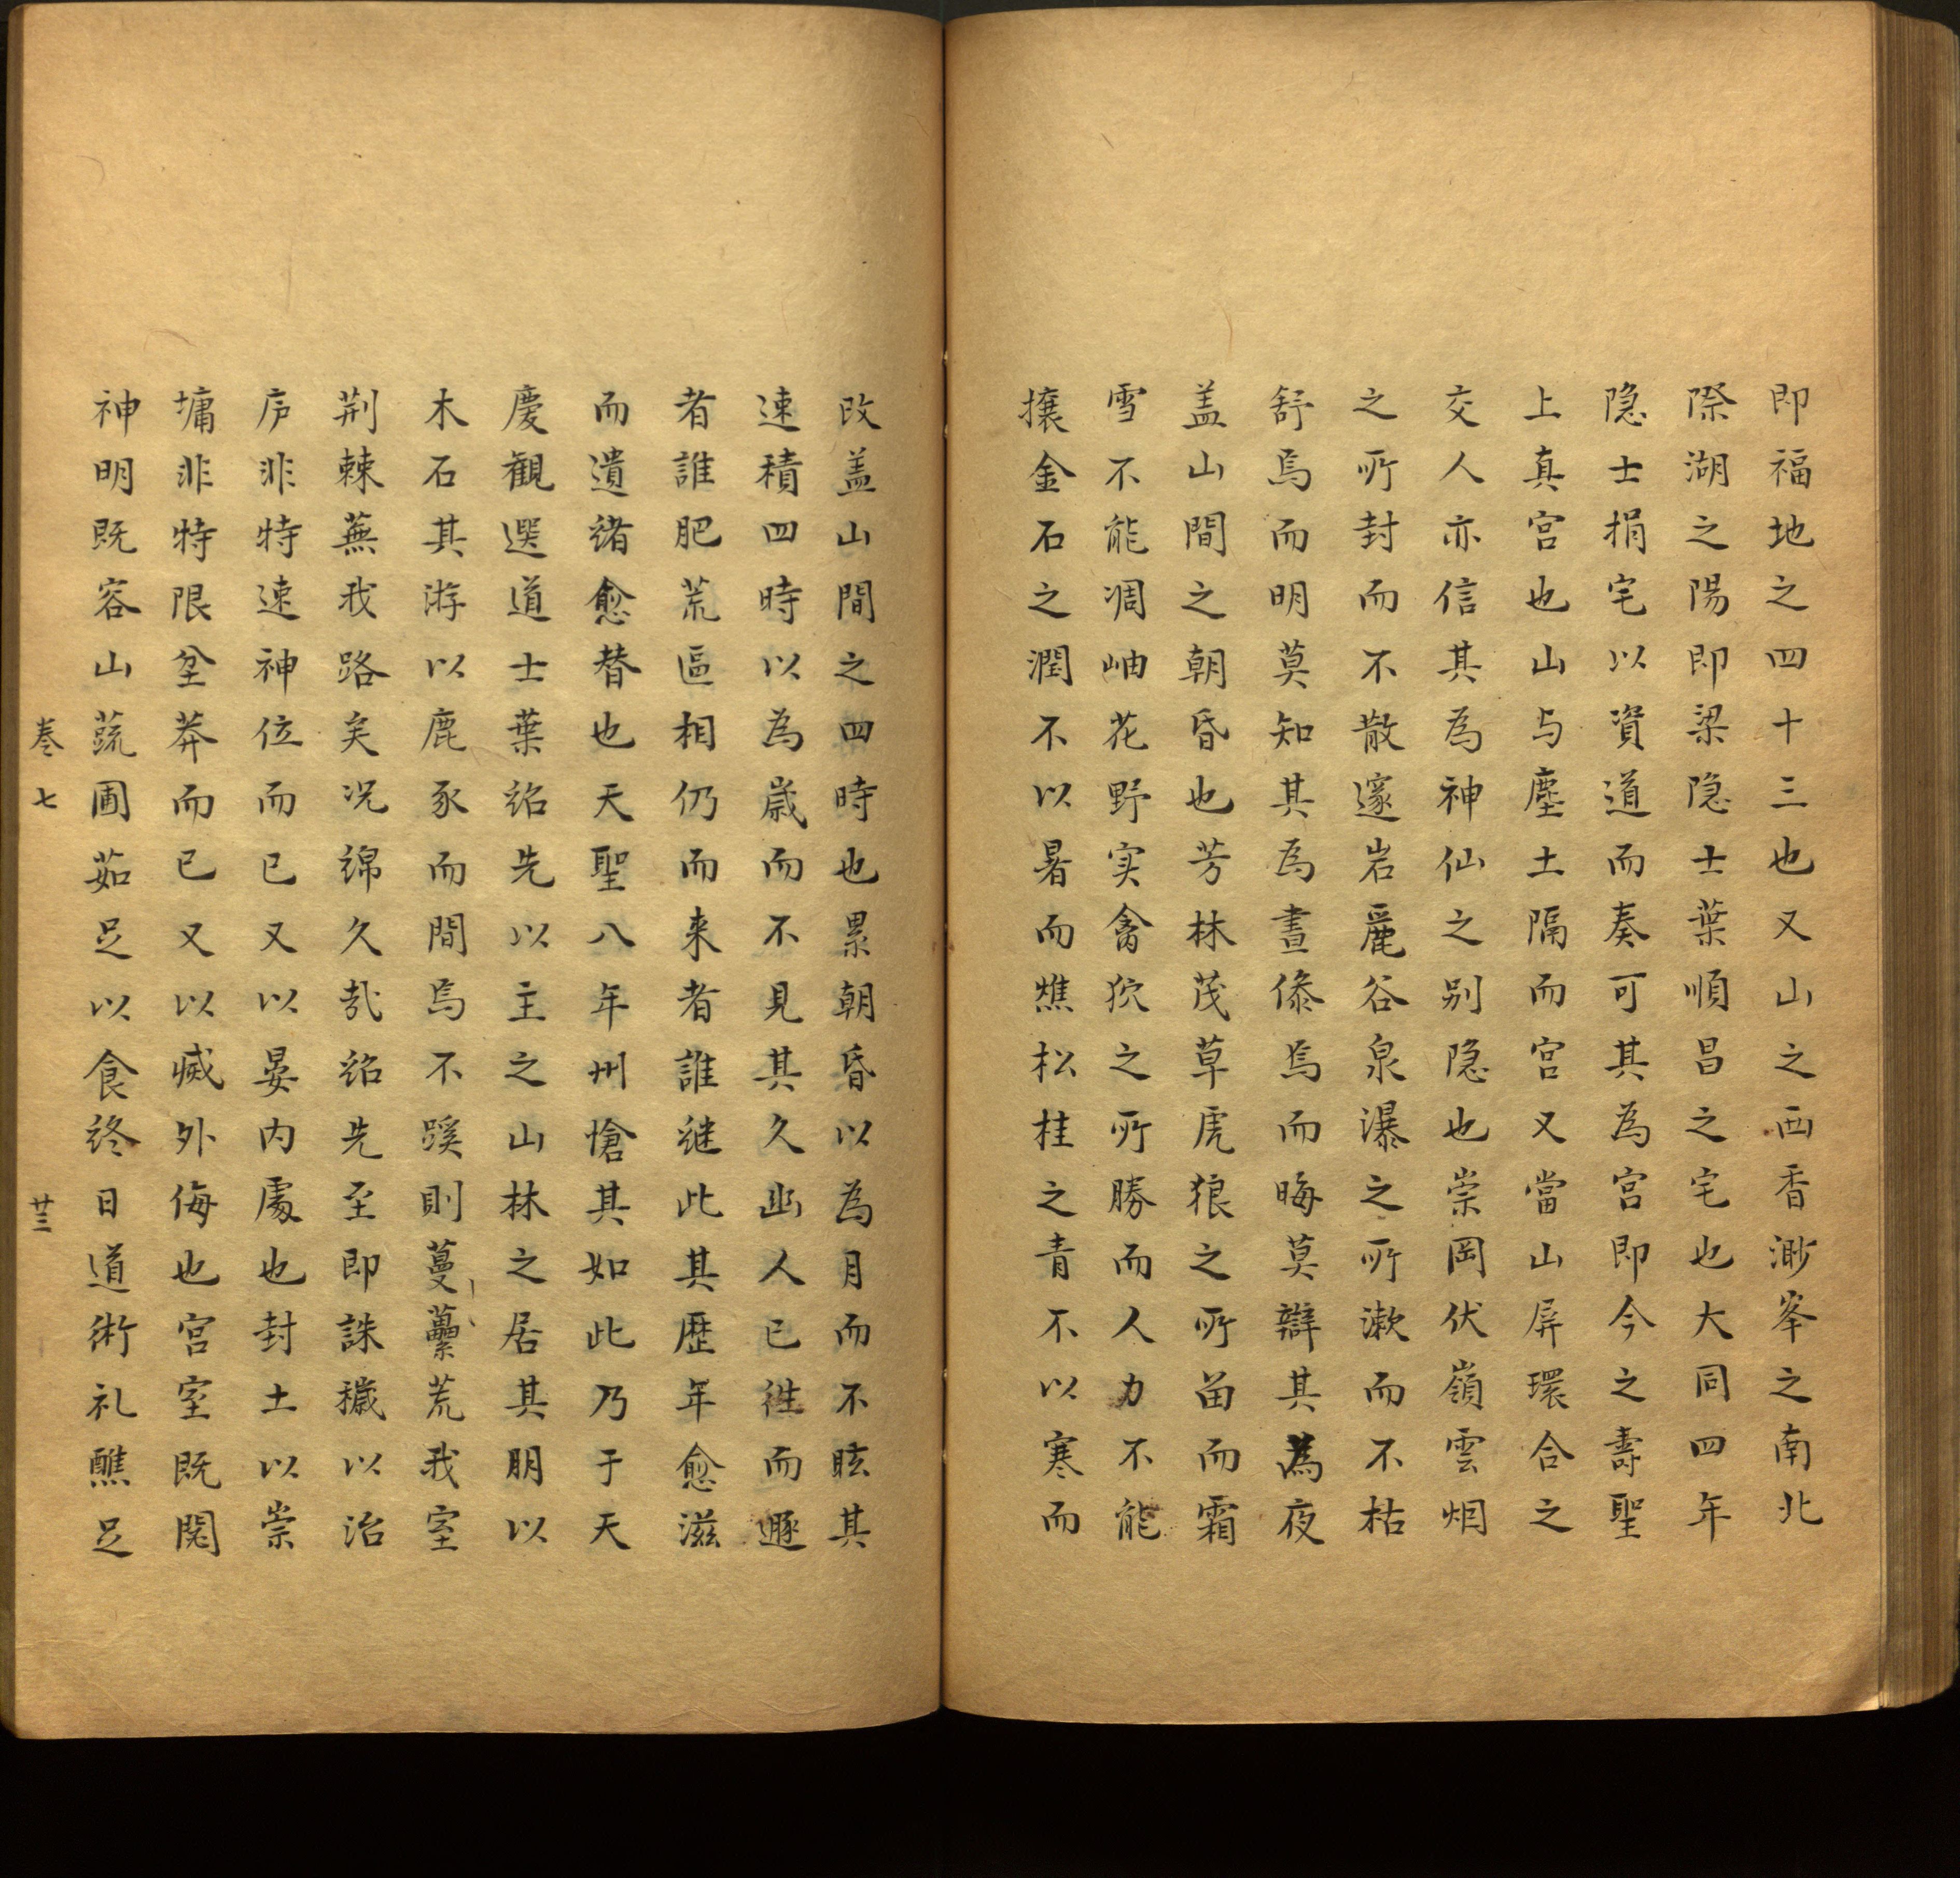 即福地之四十三也又山之西香渺峯之南北
際湖之陽即梁隐士葉順昌之宅也大同四年
隐士捐宅以資道而奏可其為宫即今之壽聖
上真宫也山与塵土隔而宫又當山屏環合之
交人亦信其為神仙之别隐也崇岡伏嶺雲烟
之所封而不散邃岩麗谷泉瀑之所漱而不枯
舒焉而明莫知其為晝傪焉而晦莫辯其為夜
盖山間之朝昏也芳林茂草虎狼之所畄而霜
雪不能凋岫花野实禽狖之所勝而人力不能
攘金石之潤不以暑而燋松桂之青不以寒而
改盖山間之四時也累朝昏以為月而不眩其
速積四時以為歳而不見其久幽人已徃而遯
者誰肥荒區相仍而来者誰継此其歴年愈滋
而遺緒愈替也天聖八年州愴其如此乃于天
慶観選道士葉紹先以主之山林之居其朋以
木石其游以鹿豕而間焉不蹊則蔓虆荒我室
荆棘蕪我路矣况綿久哉紹先至即誅穢以治
庐非特速神位而已又以晏内處也封土以崇
墉非特限坌莽而已又以烕外侮也宫室既閎
神明既容山蔬圃茹足以食终日道術礼醮足
卷七
廿三